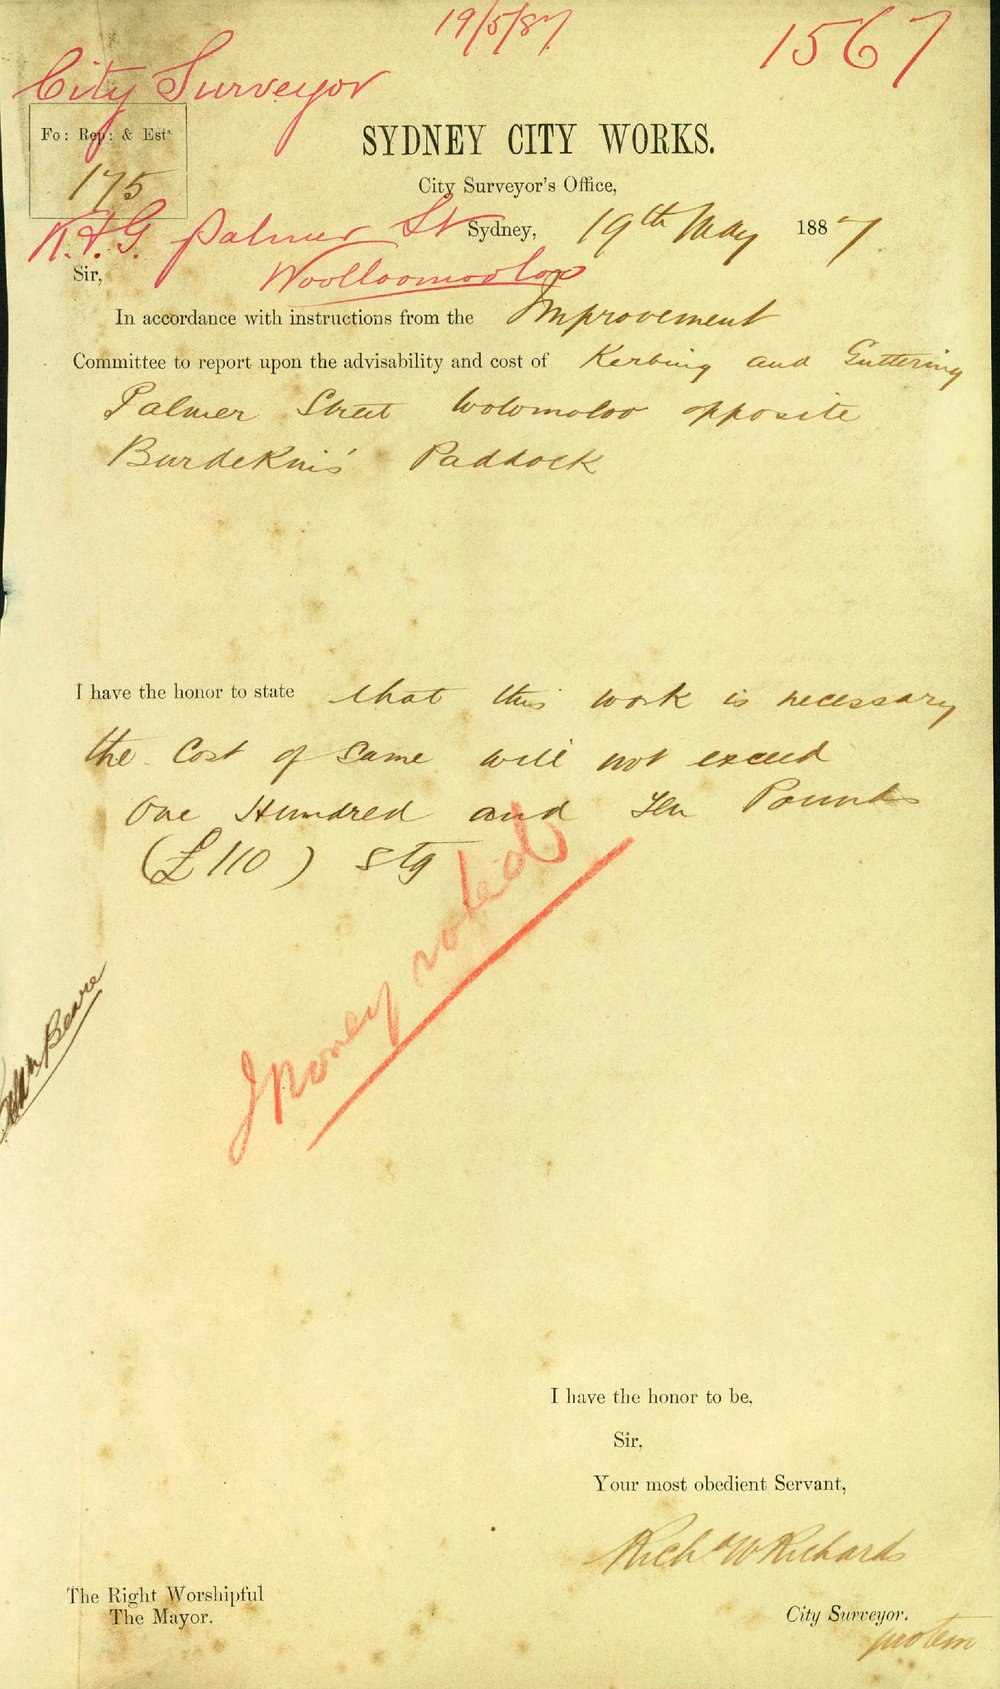 19/5/87
1567
City Surveyor
Fo: Rep: & Est^s
175
SYDNEY CITY WORKS.
City Surveyor's Office,
K. & G. Palmer St
Sydney, 19th May 1887
Woolloomooloo
Sir,
In accordance with instructions from the Improvement
Committee to report upon the advisability and cost of Kerbing and Guttering
Palmer Street Woolomoloo opposite
Burdekins' Paddock
I have the honor to state that this work is necessary
the Cost of Same will not exceed
One Hundred and Ten Pounds
(£110) Stg
Money voted
Beare
I have the honor to be,
Sir,
Your most obedient Servant,
Rich^d W Richards
The Right Worshipful
The Mayor.
City Surveyor.
protem